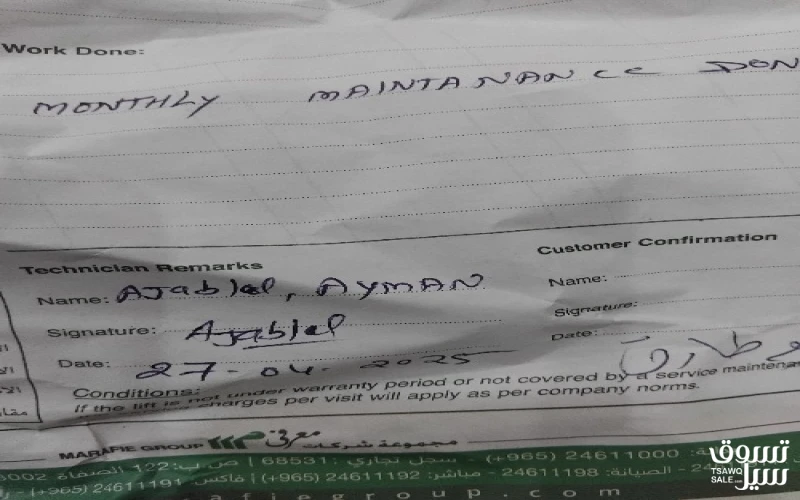 Work Done:
MONTHLY MAINTANANCE DON
Technician Remarks
Customer Confirmation
Name: AJablel, AYMAN
Name:
Signature: AJablel
Signature:
Date: 27-04-2025
Date:
طارق
Conditions:
If the lift is not under warranty period or not covered by a service maintena
charges per visit will apply as per company norms.
MARAFIE GROUP معرفي مجموعة شركات
(+965) 24611000 سجل تجاري : 68531 | ص.ب: 122 الصفاة 3002
24 - الصيانة: 24611198 - مباشر: 24611192 | فاكس (+965) 24611191
afiegroup.com
تسوق سيل
TSAWQ SALE.com